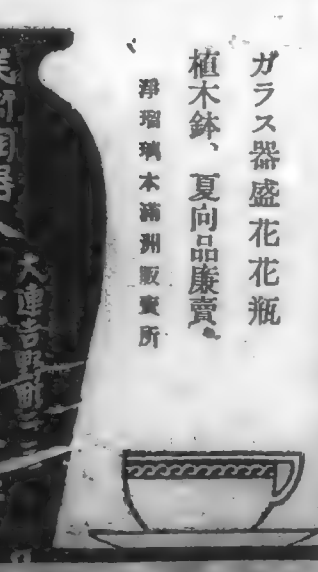 ガラス器盛花花瓶
植木鉢、夏向品廉賣。
淨瑠璃本滿洲販賣所
大連吉野町二三